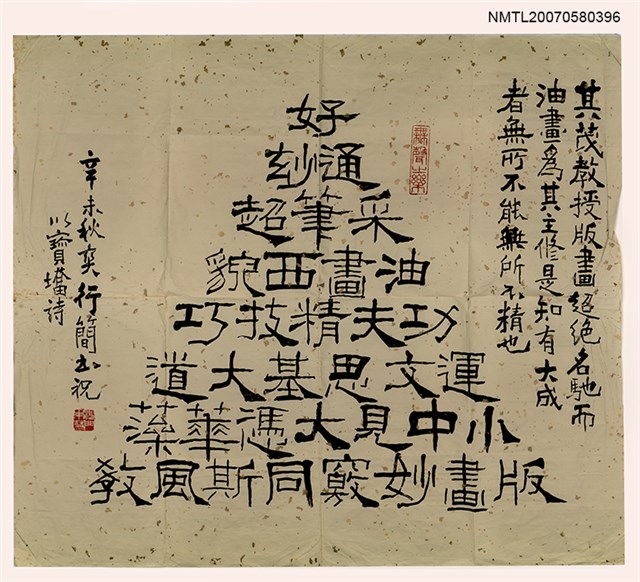 NMTL20070580396
其茂教授版畫超絕名馳而
油畫為其主修是知有大成
者無所不能無所不精也
好
通玅
采筆超
油畫西貌
功夫精技巧
運文思基大道
小中見大憑華藻
版畫妙竅同斯風教
辛未秋爽行簡書祝
以寶塔詩